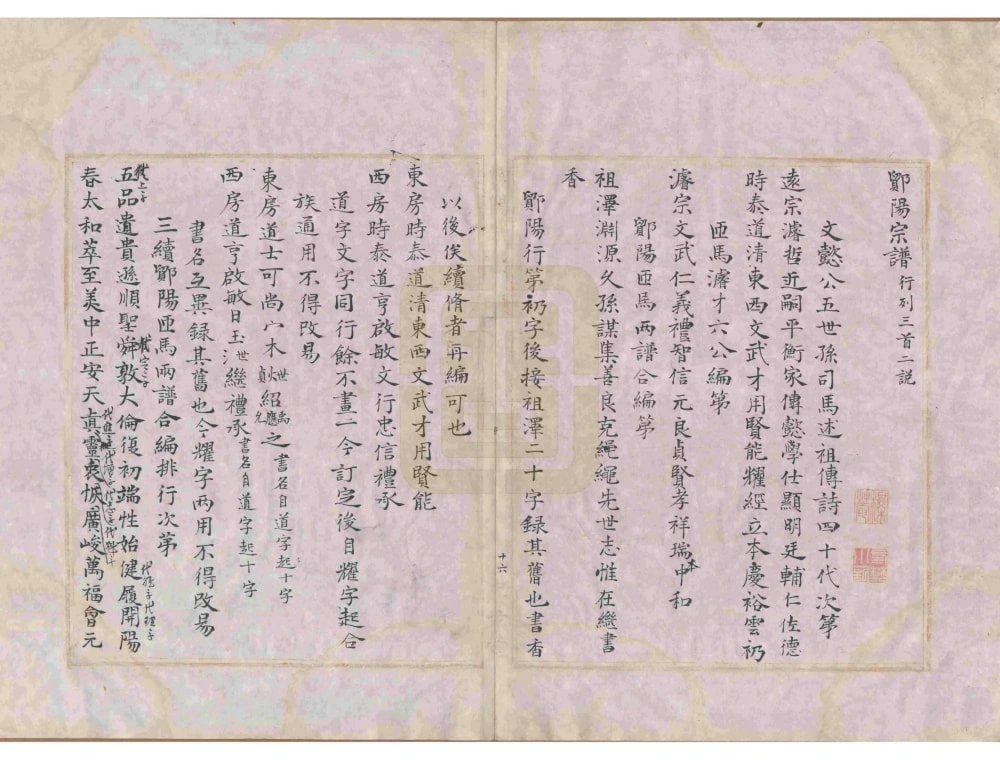 鄮陽宗譜 行列三首二説
文懿公五世孫司馬述祖傳詩四十代次第
遠宗濬哲近嗣平衡家傳懿學仕顯明廷輔仁佐德
時泰道清東西文武才用賢能耀經立本慶裕雲礽
匝馬濬才六公編第
濬宗文武仁義禮智信元良貞賢孝祥瑞中和
鄮陽匝馬兩譜合編第
祖澤淵源久孫謀集善良克繩繩先世志惟在繼書
香
鄮陽行第礽字後接祖澤二十字録其舊也書香
十六
以後俟續脩者再編可也
東房時泰道清東西文武才用賢能
西房時泰道亨啟敏文行忠信禮承
道字文字同行餘不畫一今訂定之後自耀字起合
族通用不得改易
東房道士可尚宀木世火貞禹紹應之元 書名自道字起十字
西房道亨啟敏日玉世氵繼禮承 書名自道字起十字
書名互異録其舊也今耀字兩用不得改易
三續鄮陽匝馬兩譜合編排行次第
五品遺貴遜順聖舜敦大倫復初端性始健履開陽
春太和萃至美中正安天真靈衷恢廣峻萬福會元